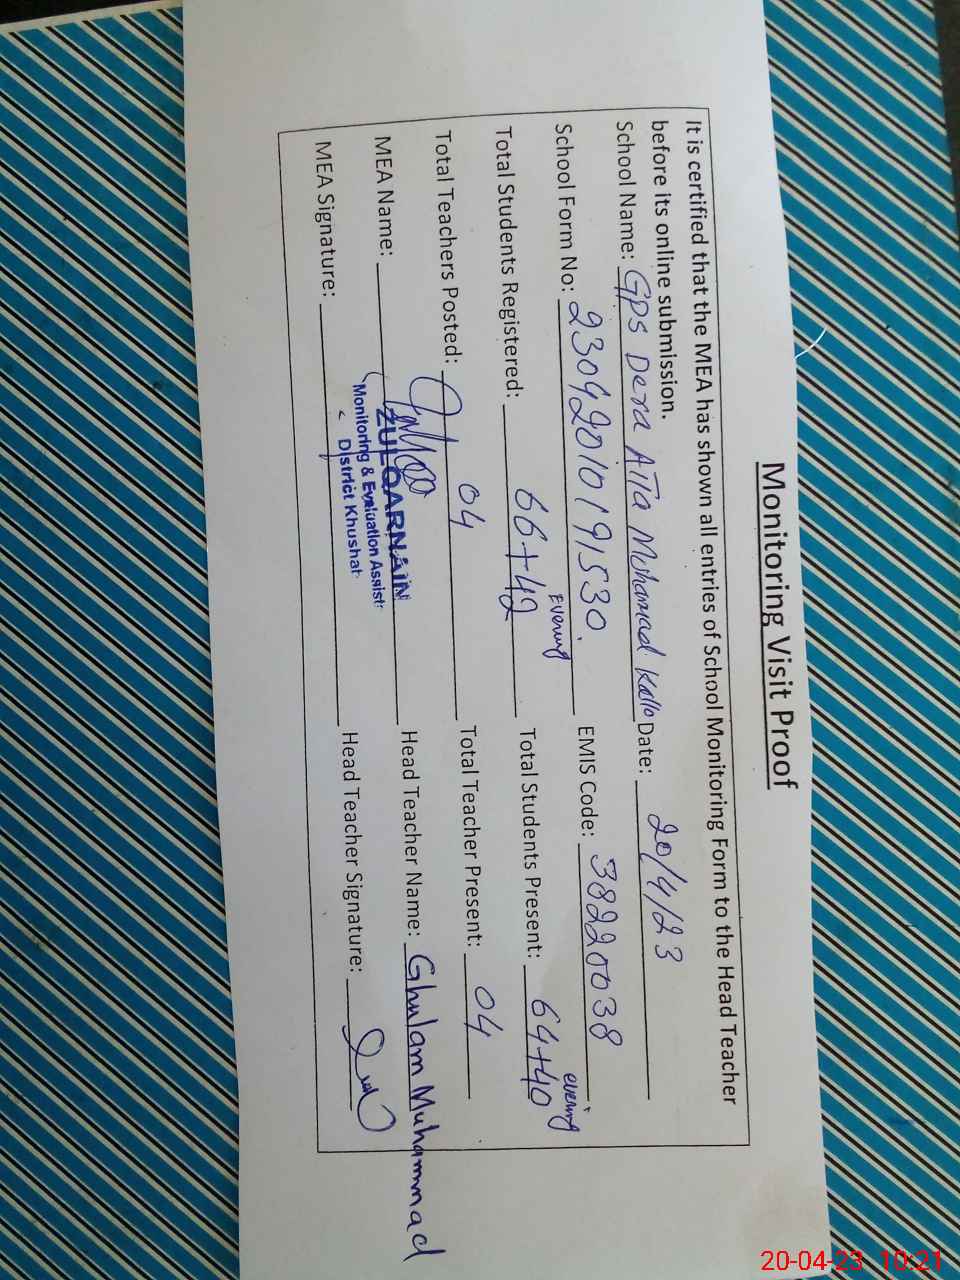 Monitoring Visit Proof
It is certified that the MEA has shown all entries of School Monitoring Form to the Head Teacher
before its online submission.
School Name: GPS Dera Atta Mohammad Kallo Date: 20/4/23
School Form No: 23092010191530. EMIS Code: 38220038
Total Students Registered: 66+42 Evening Total Students Present: 64+40 evening
Total Teachers Posted: 04 Total Teacher Present: 04
MEA Name: ZULQARNAIN Head Teacher Name: Ghulam Muhammad
Monitoring & Evaluation Assist:
District Khushab
MEA Signature: Head Teacher Signature:
20-04-23 10:21